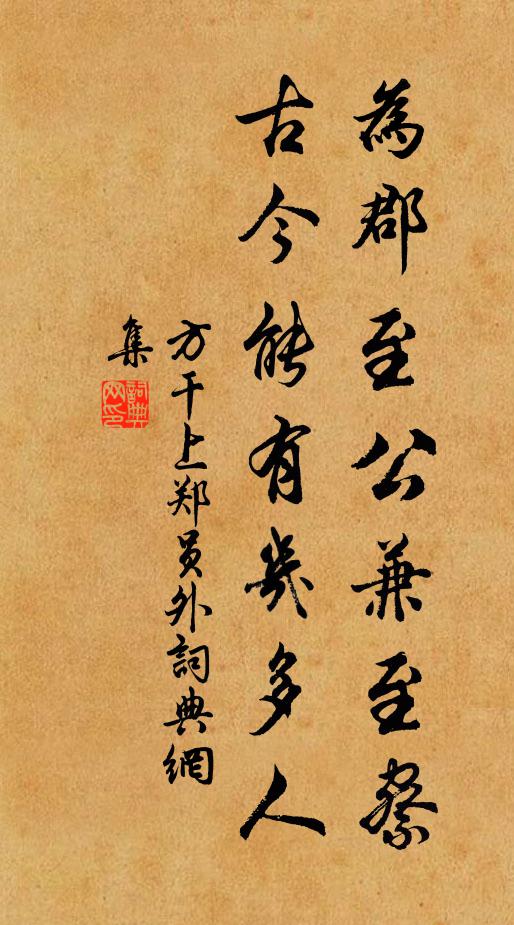 為郡至公兼至察
古今能有幾多人
方干上郑员外詞典網
集
詞典
网印